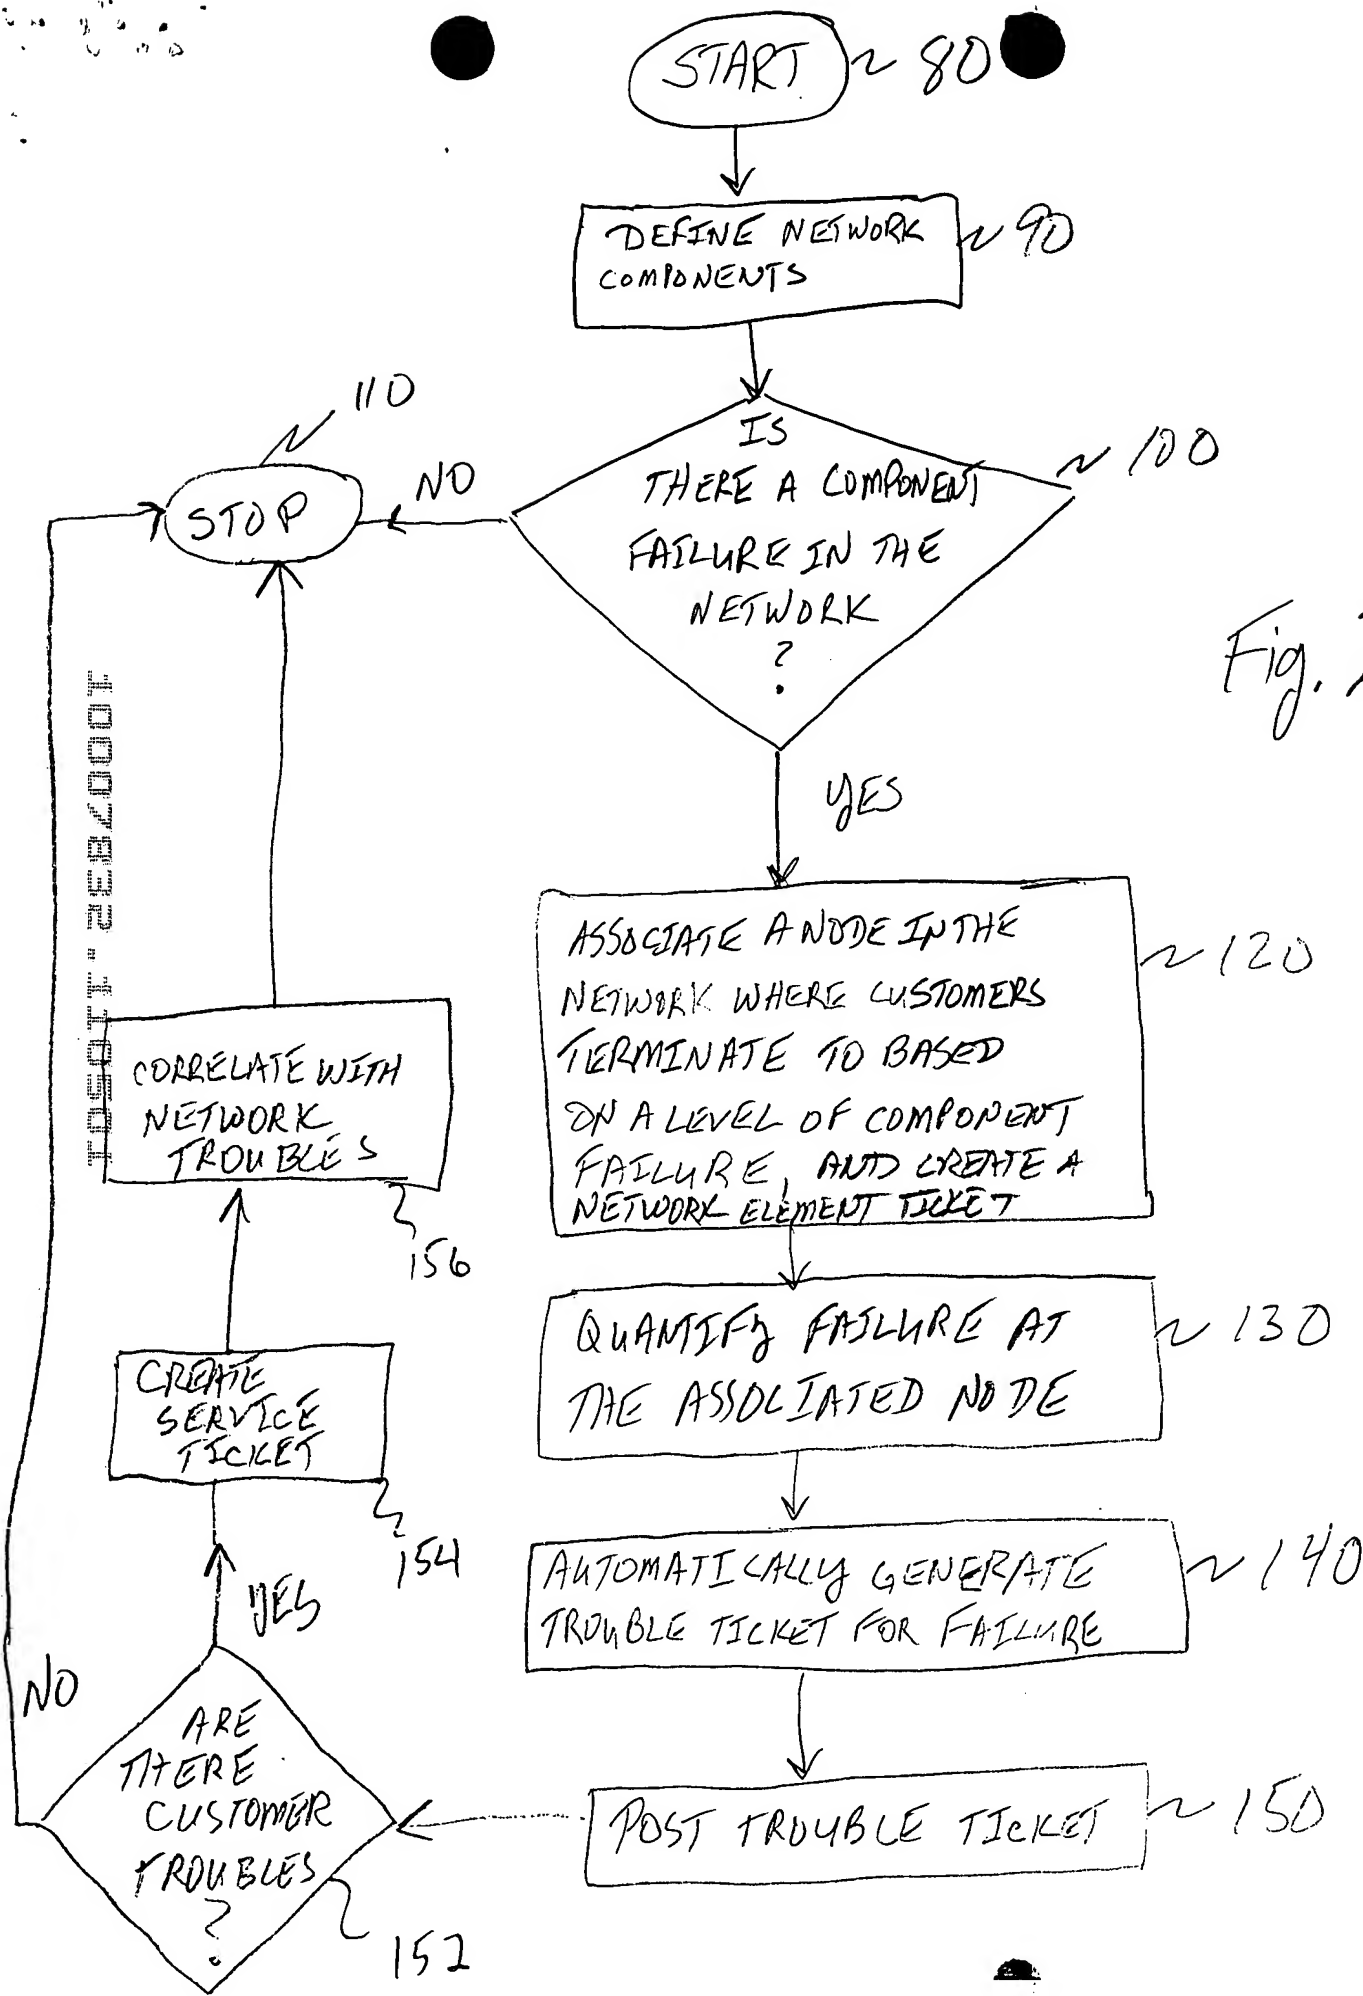 START 80
DEFINE NETWORK 90
COMPONENTS
110
STOP
NO
IS
THERE A COMPONENT
FAILURE IN THE
NETWORK
?
100
Fig.
YES
ASSOCIATE A NODE IN THE
NETWORK WHERE CUSTOMERS
TERMINATE TO BASED
ON A LEVEL OF COMPONENT
FAILURE, AND CREATE A
NETWORK ELEMENT TICKET
120
QUANTIFY FAILURE AT
THE ASSOCIATED NODE
130
AUTOMATICALLY GENERATE
TROUBLE TICKET FOR FAILURE
140
POST TROUBLE TICKET
150
ARE
THERE
CUSTOMER
TROUBLES
?
152
NO
YES
CREATE
SERVICE
TICKET
154
CORRELATE WITH
NETWORK
TROUBLES
156
10007832.110501